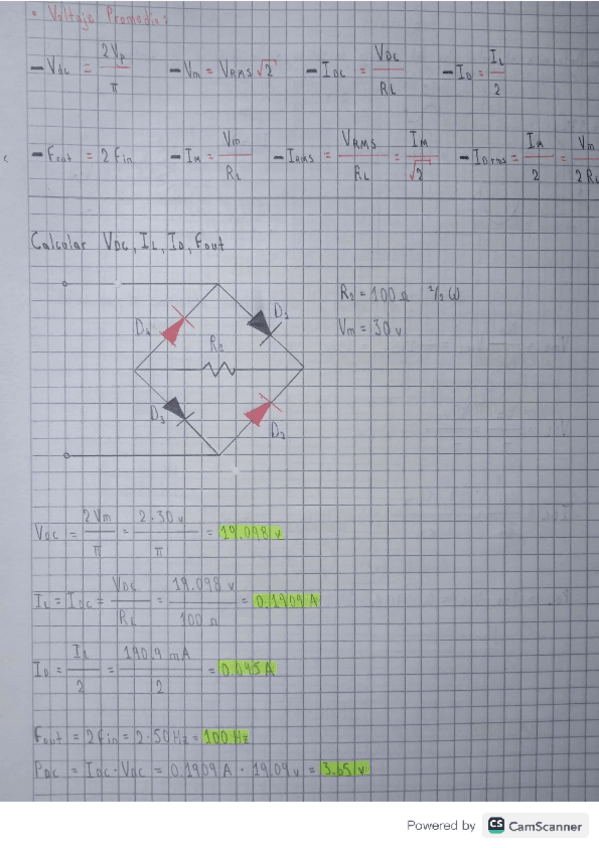 • Voltaje Promedio:
- Vdc = 2Vp / π   - Vm = VRMS √2   - IDC = VDC / RL   - ID = IL / 2
- Fout = 2 fin   - IM = Vm / RL   - IRMS = VRMS / RL = IM / √2   - IDrms = IM / 2 = Vm / 2 RL
Calcular VDC, IL, ID, Fout
R1 = 100 Ω ½ W
Vm = 30 v
D4 D1
R1
D3 D2
VDC = 2Vm / π = 2·30 v / π = 19.098 v
IL = IDC = VDC / RL = 19.098 v / 100 Ω = 0.1909 A
ID = IL / 2 = 190.9 mA / 2 = 0.095 A
Fout = 2 fin = 2·50 Hz = 100 Hz
PDC = IDC · VDC = 0.1909 A · 19.09 v = 3.65 v
Powered by CS CamScanner